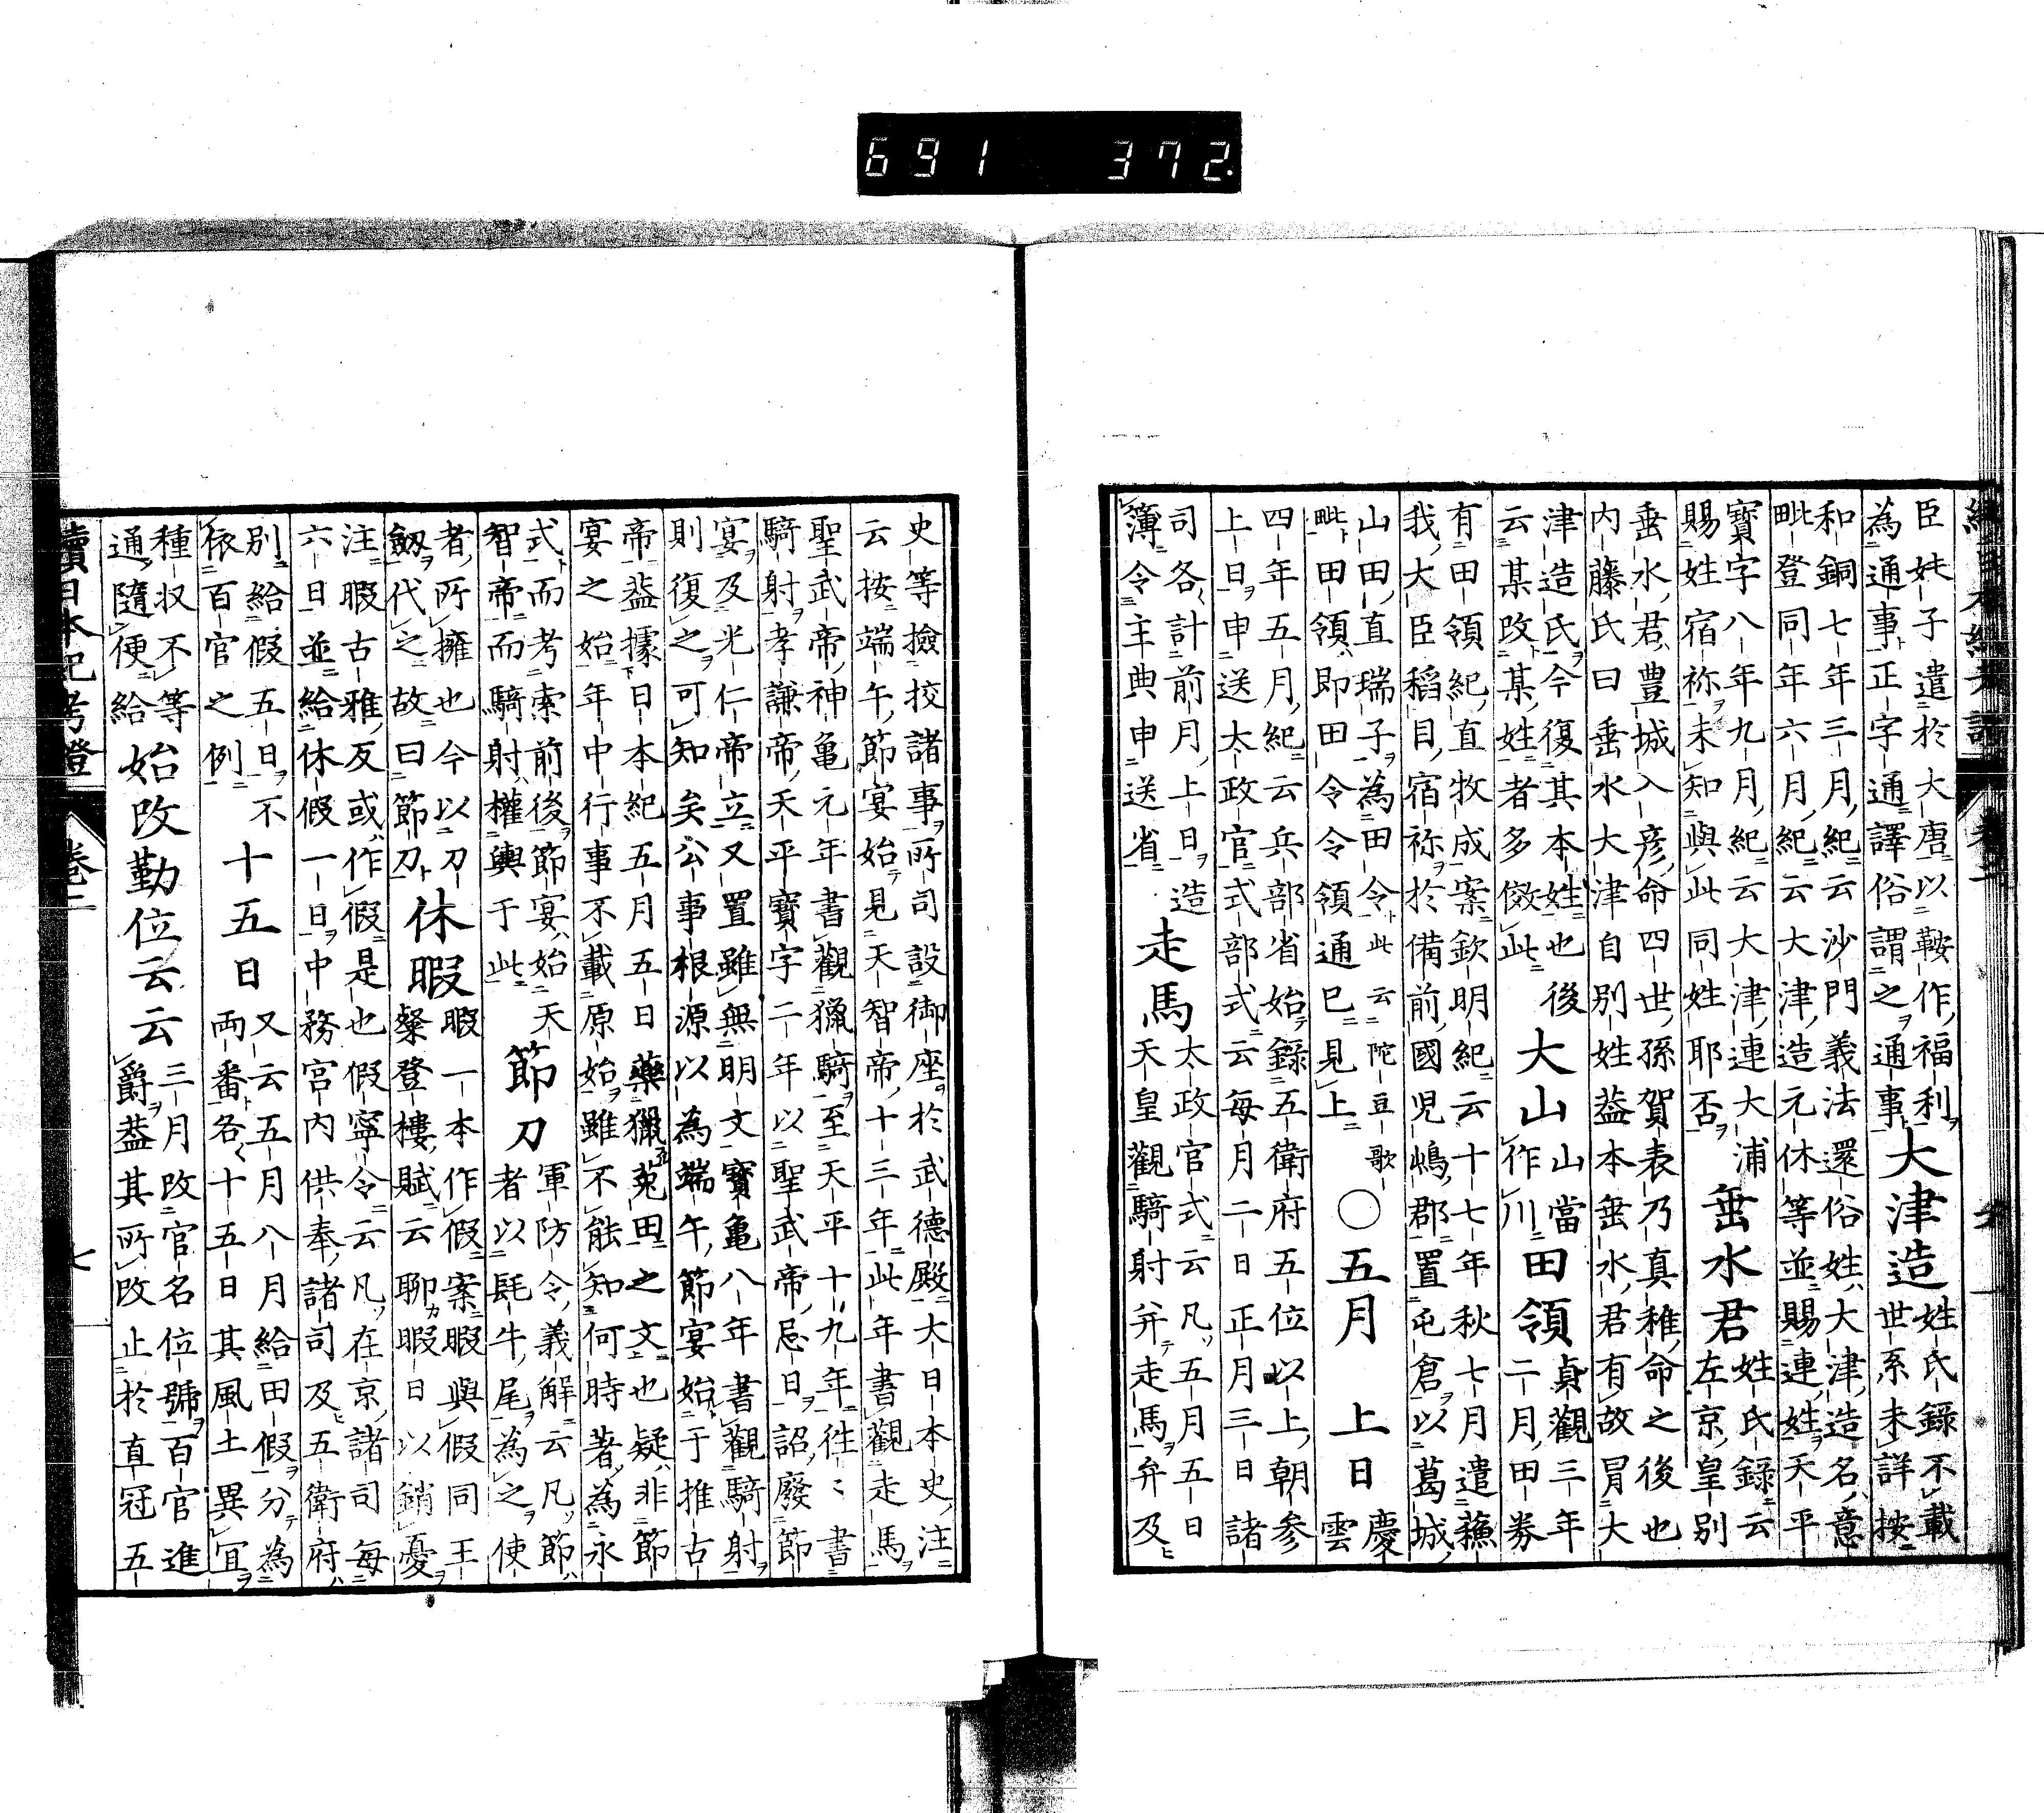 691 372.
臣妋子遣於大唐以鞍作福利
為通事正字通譯俗謂之通事
大津造
姓氏錄不載
世系未詳按
和銅七年三月紀云沙門義法還俗姓大津造名意
毗登同年六月紀云大津造元休等並賜連姓天平
寶字八年九月紀云大津連大浦
賜姓宿祢未知與此同姓耶否
垂水君
姓氏錄云
左京皇別
垂水君豊城入彦命四世孫賀表乃真稚命之後也
内藤氏曰垂水大津自別姓葢本垂水君有故冒大
津造氏今復其本姓也後
云某改某姓者多傚此
大山
山當
作川
田領
貞觀三年
二月田券
有田領紀直牧成案欽明紀云十七年秋七月遣蘓
我大臣稻目宿祢於備前國児嶋郡置屯倉以葛城
山田直瑞子為田令此云陀豆歌
毗田領即田令令領通已見上
〇五月
上日
慶
雲
四年五月紀云兵部省始錄五衛府五位以上朝参
上日申送太政官式部式云每月二日正月三日諸
司各計前月上日造
簿令主典申送省
走馬
太政官式云凡五月五日
天皇觀騎射并走馬弁及
史等撿挍諸事所司設御座於武德殿大日本史注
云按端午節宴始見天智帝十三年此年書觀走馬
聖武帝神亀元年書觀獵騎至天平十九年徃〻書
騎射孝謙帝天平寶字二年以聖武帝忌日詔廢節
宴及光仁帝立又置雖無明文寶亀八年書觀騎射
則復之可知矣公事根源以為端午節宴始于推古
帝葢據日本紀五月五日藥獵菟田之文也疑非節
宴之始年中行事不載原始雖不能知何時著為永
式而考索前後節宴始天
智帝而騎射權輿于此
節刀
軍防令義解云凡節
者以髦牛尾為之使
者所擁也今以刀
劔代之故曰節刀
休暇
暇一本作假案暇與假同王
粲登樓賦云聊暇日以銷憂
注暇古雅反或作假是也假寧令云凡在京諸司每
六日並給休假一日中務宮内供奉諸司及五衛府
別給假五日不
依百官之例
十五日
又云五月八月給田假分為
兩番各十五日其風土異冝
種収不等
通隨便給
始改勤位云云
三月改官名位號百官進
爵葢其所改止於直冠五
續日本紀考證
卷二
七